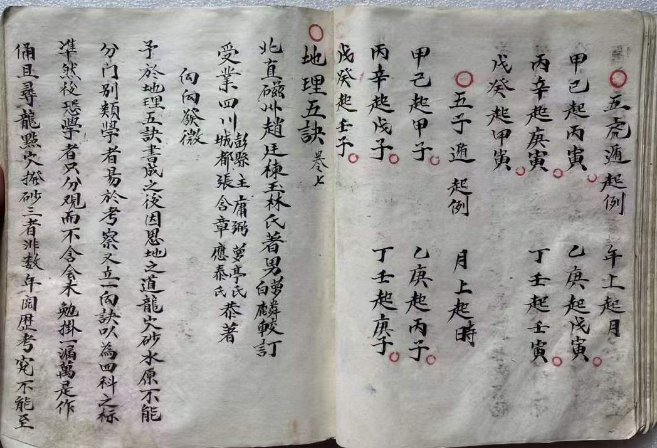 五虎遁起例 年上起月
甲己起丙寅 乙庚起戊寅
丙辛起庚寅 丁壬起壬寅
戊癸起甲寅
五子遁起例 月上起時
甲己起甲子 乙庚起丙子
丙辛起戊子 丁壬起庚子
戊癸起壬子
地理五訣 卷七
北直磁州趙廷棟玉林氏著男 夢麟 白麟 較訂
受業四川 彭縣主庸弼夢亭氏 成都張含章應泰氏 恭著
向向發微
予於地理五訣書成之後因思地之道龍穴砂水原不能
分門別類學者易於考察又立一向訣以為四科之標
準然後恐學者只分观而不含会未勉掛一漏萬是作
俑且尋龍點穴撥砂三者非数年閱歷考究不能至